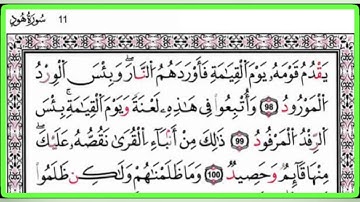 سُورَةُ هُودٍ 11
يَقْدُمُ قَوْمَهُۥ يَوْمَ ٱلْقِيَٰمَةِ فَأَوْرَدَهُمُ ٱلنَّارَ ۖ وَبِئْسَ ٱلْوِرْدُ
ٱلْمَوْرُودُ 98 وَأُتْبِعُوا۟ فِى هَٰذِهِۦ لَعْنَةً وَيَوْمَ ٱلْقِيَٰمَةِ ۚ بِئْسَ
ٱلرِّفْدُ ٱلْمَرْفُودُ 99 ذَٰلِكَ مِنْ أَنۢبَآءِ ٱلْقُرَىٰ نَقُصُّهُۥ عَلَيْكَ ۖ
مِنْهَا قَآئِمٌ وَحَصِيدٌ 100 وَمَا ظَلَمْنَٰهُمْ وَلَٰكِن ظَلَمُوٓا۟